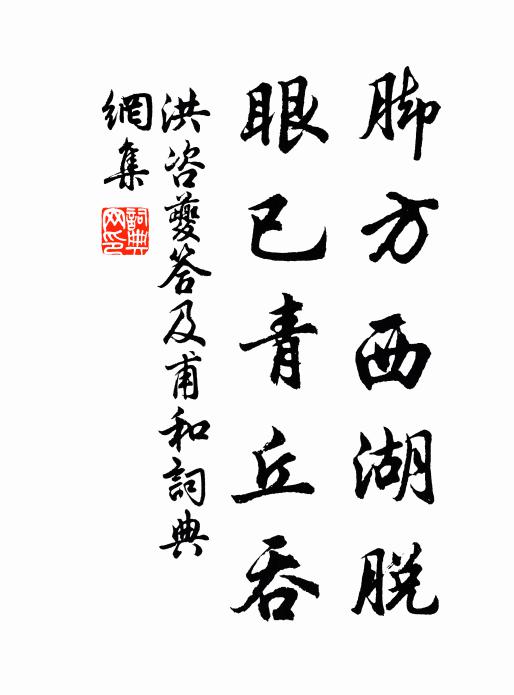 脚方西湖脫
眼已青丘吞
洪咨夔答及甫和詞典
網集
詞典網印